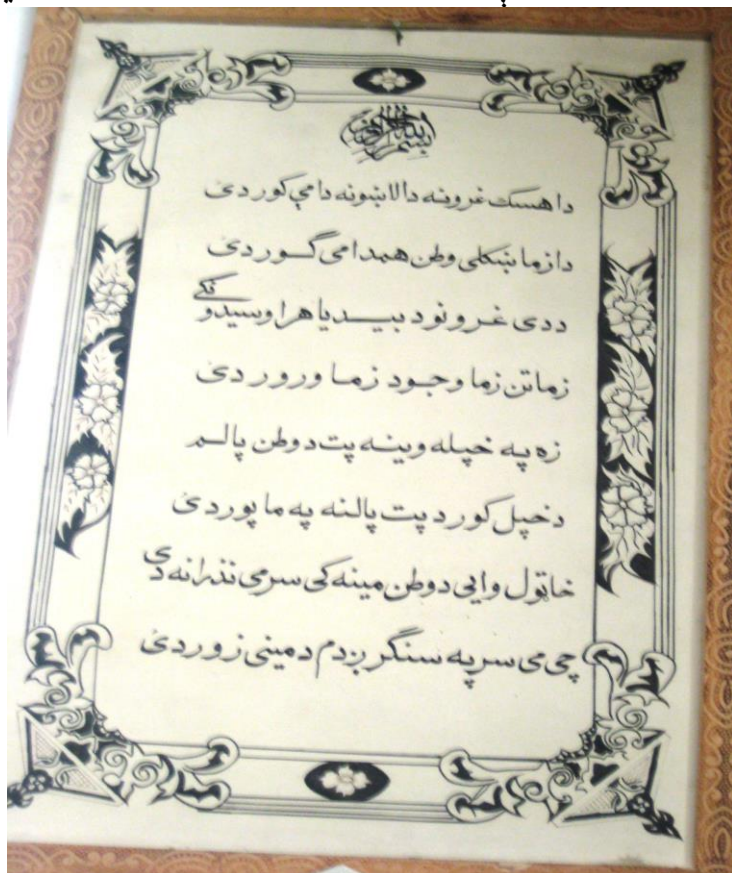 بسم الله الرحمن الرحیم
دا هسک غرونه دالاښونه دامې کور دی
دا زما ښکلی وطن همدامی گور دی
ددی غرونو د بیدیا هر اوسیدونکے
زماتن زما وجود زما ورور دی
زه په خپله وینه پت دوطن پالم
دخپل کور دپت پالنه په ما پور دی
خاټول وایی دوطن مینه کی سرمی نذرانه دی
چی می سر په سنگر ږدم دمینی زور دی